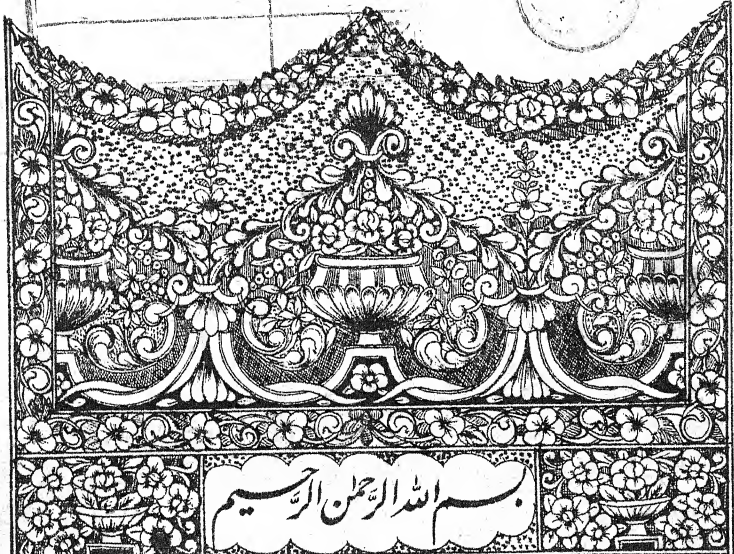 بسم الله الرَّحمٰن الرَّحيم